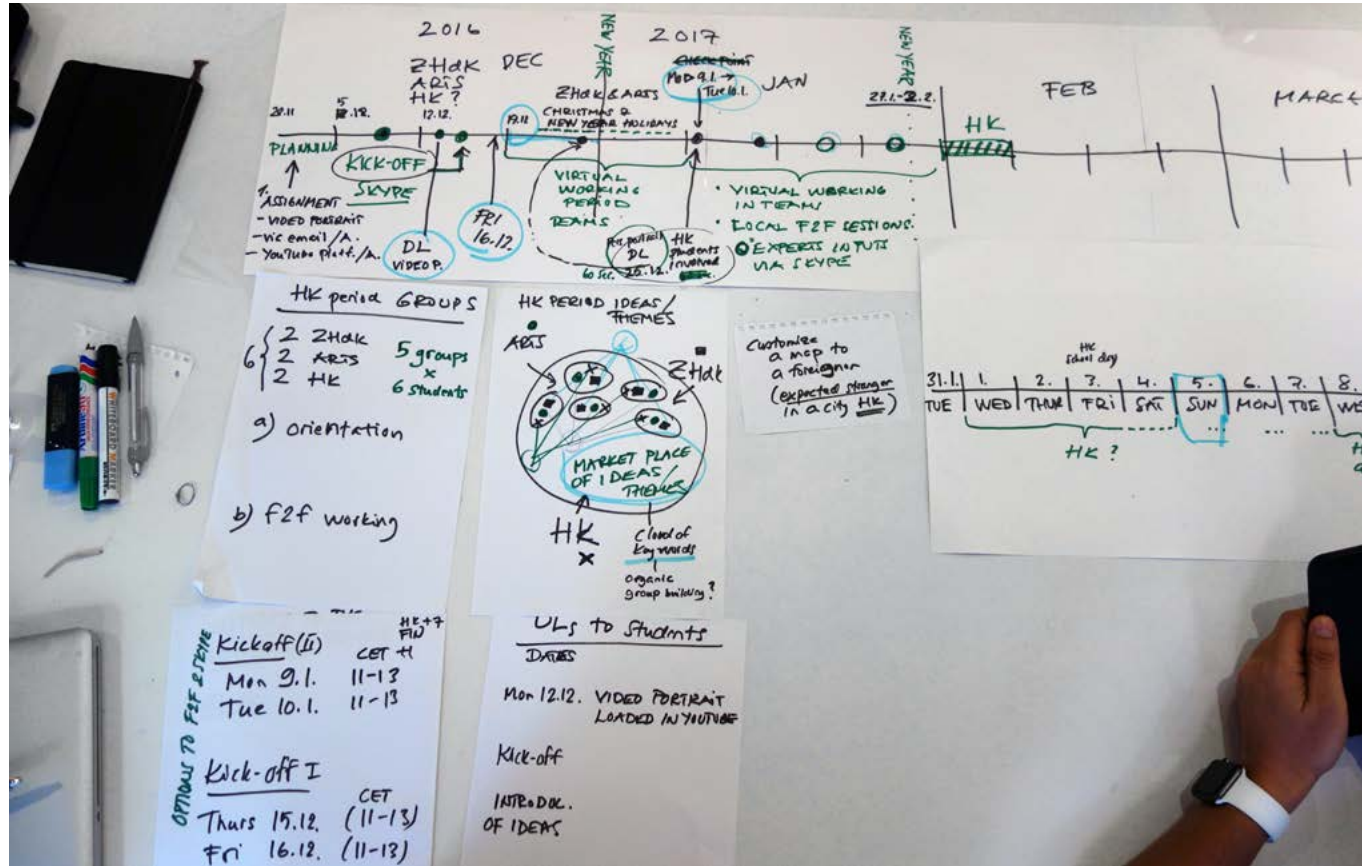 2016
2017
ZHdK
ARTS
HK ?
DEC
NEW YEAR
CHECK POINT
MO 9.1. →
Tue 10.1.
JAN
NEW YEAR
FEB
MARCH
28.11
5
.12.
12.12.
19.12
ZHdK & ARTS
CHRISTMAS &
NEW YEAR HOLIDAYS
27.1.-2.2.
HK
PLANNING
KICK-OFF
SKYPE
1.
ASSIGNMENT
- VIDEO PORTRAIT
- via email /A.
- YouTube platf./A.
DL
VIDEO P.
FRI
16.12.
VIRTUAL
WORKING
PERIOD
TEAMS
60 sec.
DL
HK
students
involved
• VIRTUAL WORKING
IN TEAMS
• LOCAL F2F SESSIONS.
EXPERTS INPUTS
VIA SKYPE
HK period GROUPS
6 { 2 ZHdK
2 ARTS
2 HK
5 groups
x
6 students
a) orientation
b) f2f working
HK PERIOD IDEAS/
THEMES
ARTS
ZHdK
MARKET PLACE
OF IDEAS/
THEMES
HK
x
cloud of
key words
organic
group building?
Customize
a map to
a foreigner
(expected stranger
in a city HK)
HK
school day
31.1. 1. 2. 3. 4. 5. 6. 7. 8.
TUE WED THUR FRI SAT SUN MON TUE WE
HK ?
OPTIONS TO F2F & SKYPE
Kickoff (II)
HK+7
FIN
CET +1
Mon 9.1. 11-13
Tue 10.1. 11-13
Kick-off I
CET
Thurs 15.12. (11-13)
Fri 16.12. (11-13)
DLs to students
DATES
Mon 12.12. VIDEO PORTRAIT
LOADED IN YOUTUBE
Kick-off
INTRODUC.
OF IDEAS